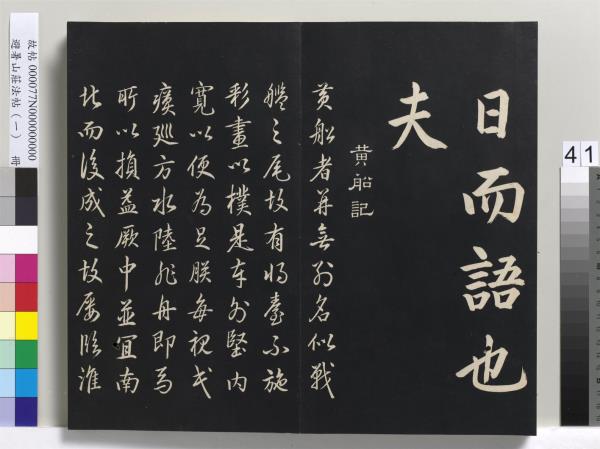 日而語也
夫
黄船記
黄船者并無別名似戰
艦之尾故有將臺不施
彩畫以樸是本外堅内
寛以便為足朕每視民
瘼巡方水陸非舟即馬
所以損益厥中並宜南
北而後成之故屢臨淮
故帖 000077N000000000
避暑山莊法帖(一) 冊
41